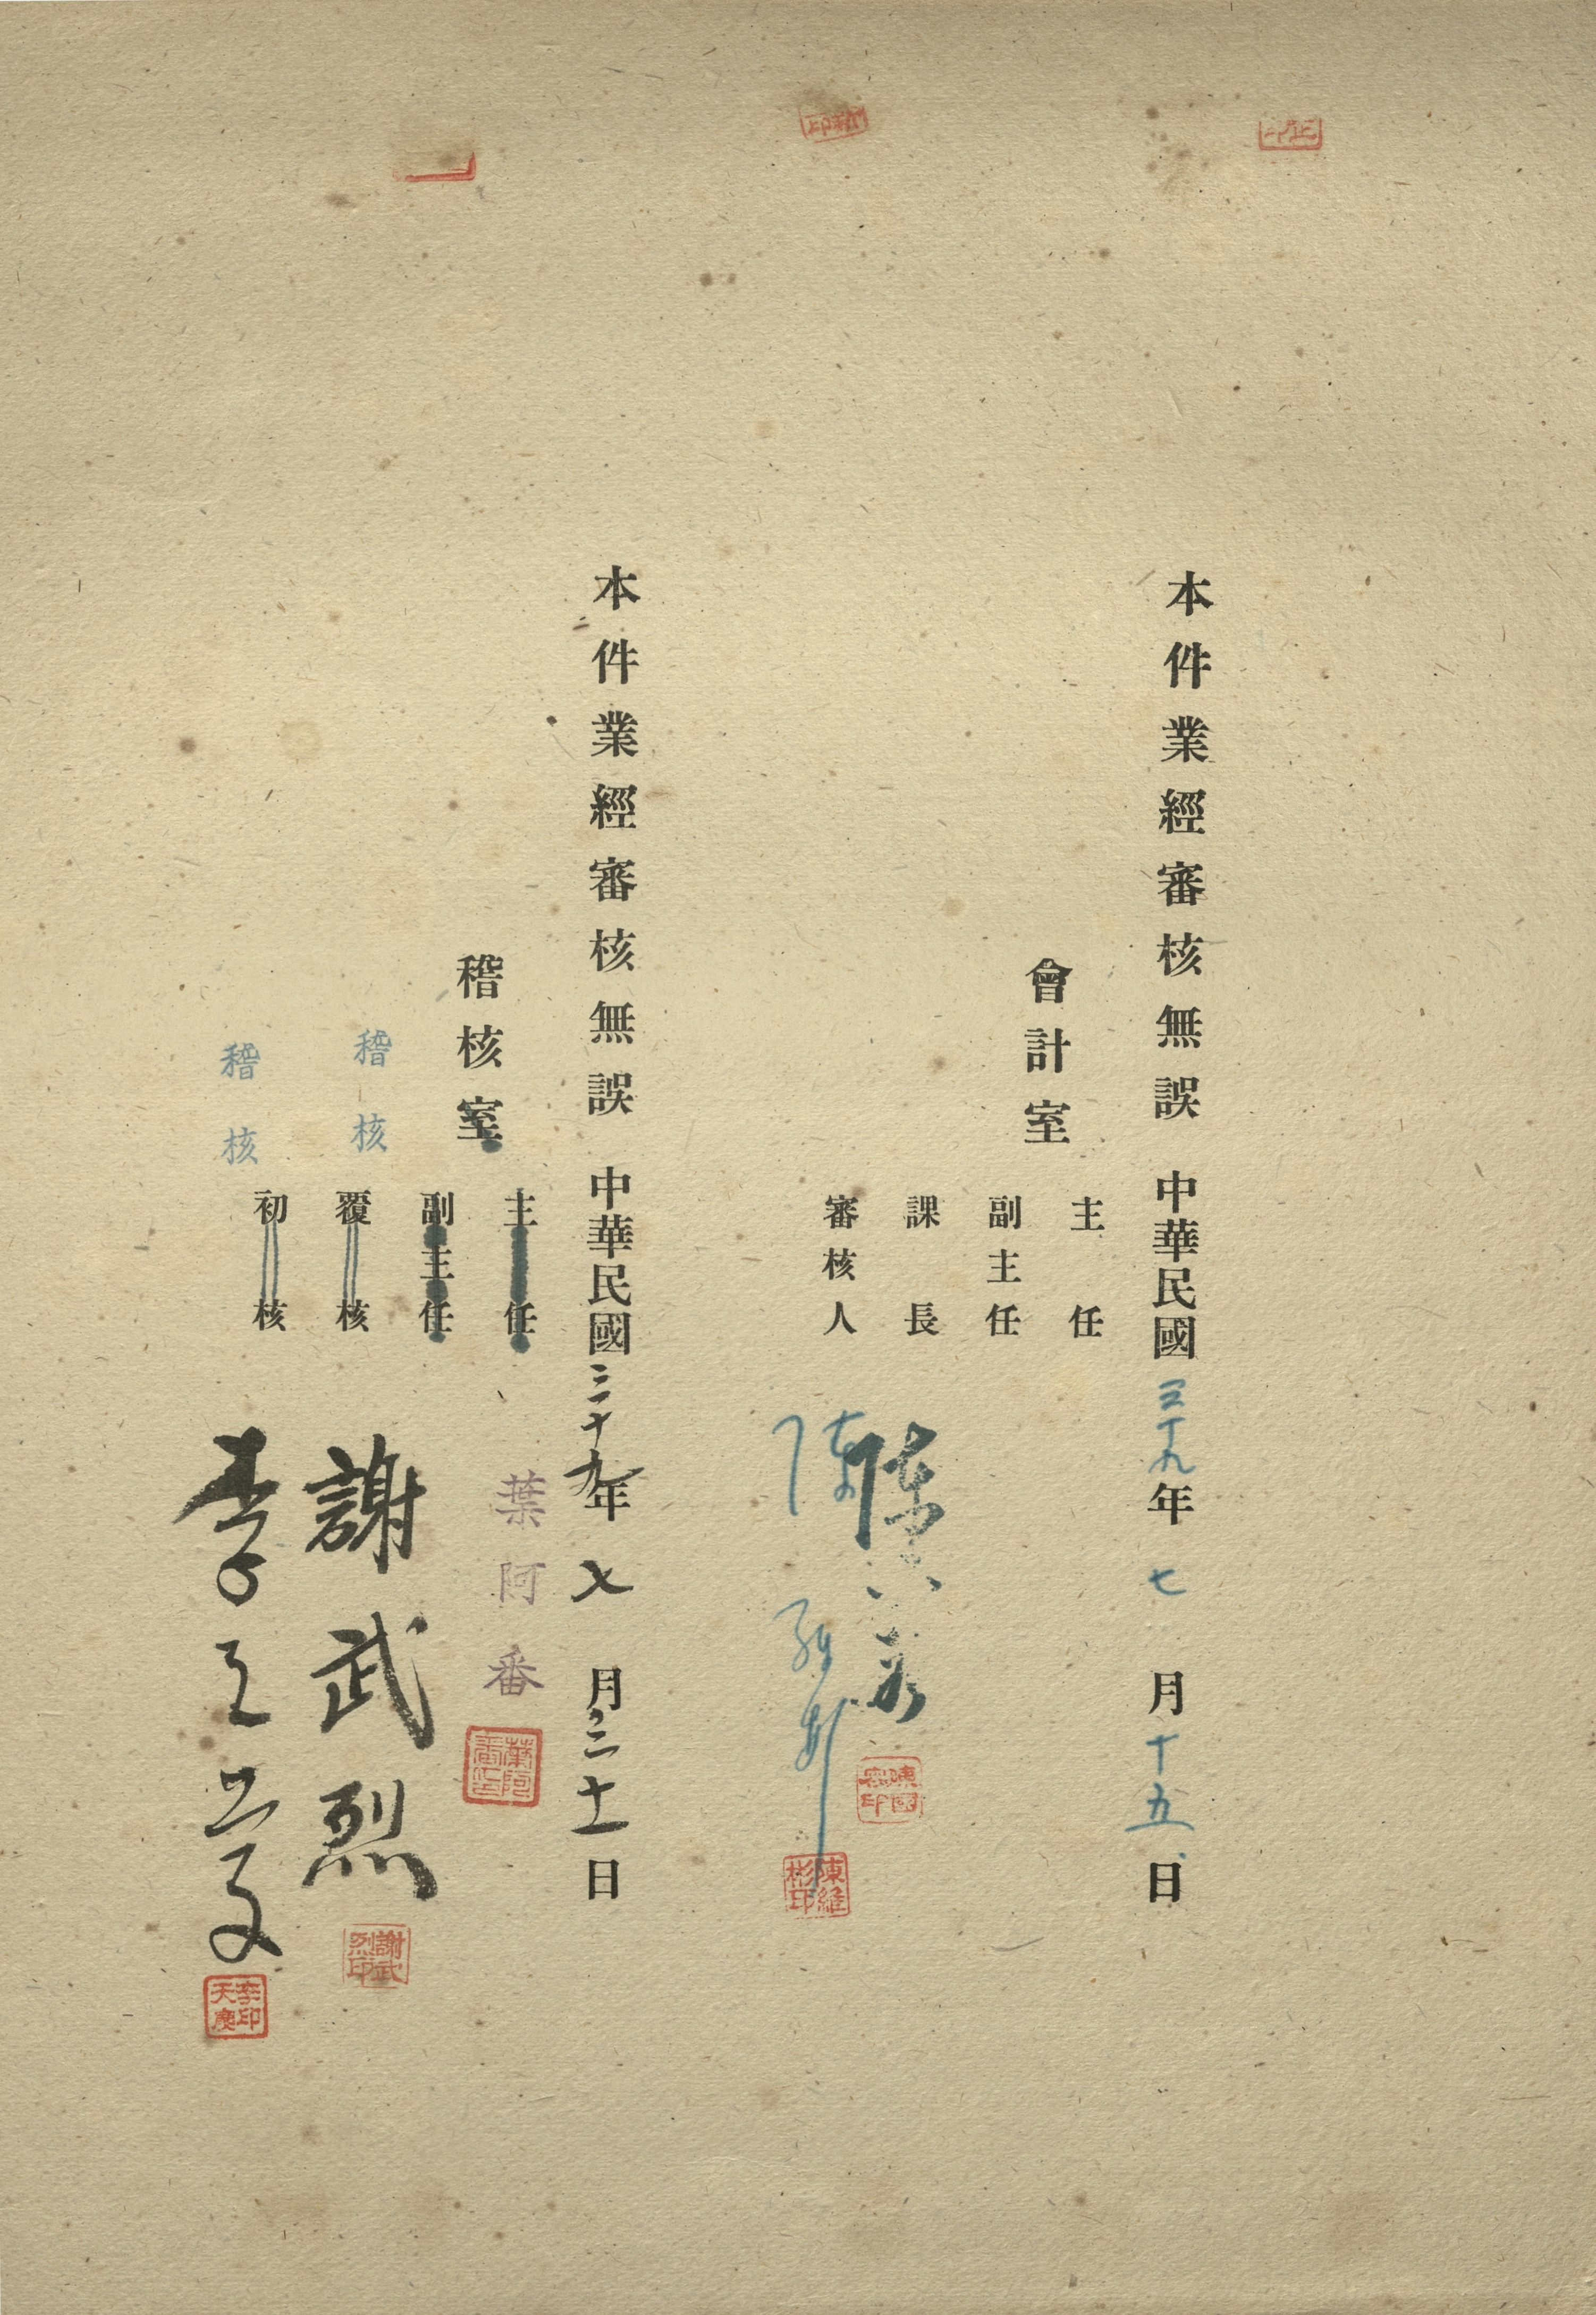 本件業經審核無誤 中華民國三十九年七月十五日
會計室
主任
副主任
課長
審核人
陳
陳維彬
陳國印
陳維彬印
本件業經審核無誤 中華民國三十九年七月三十一日
稽核室
主任 葉阿番
副主任
稽核
覆核 謝武烈
謝武烈印
稽核
初核 李天慶
李印天慶